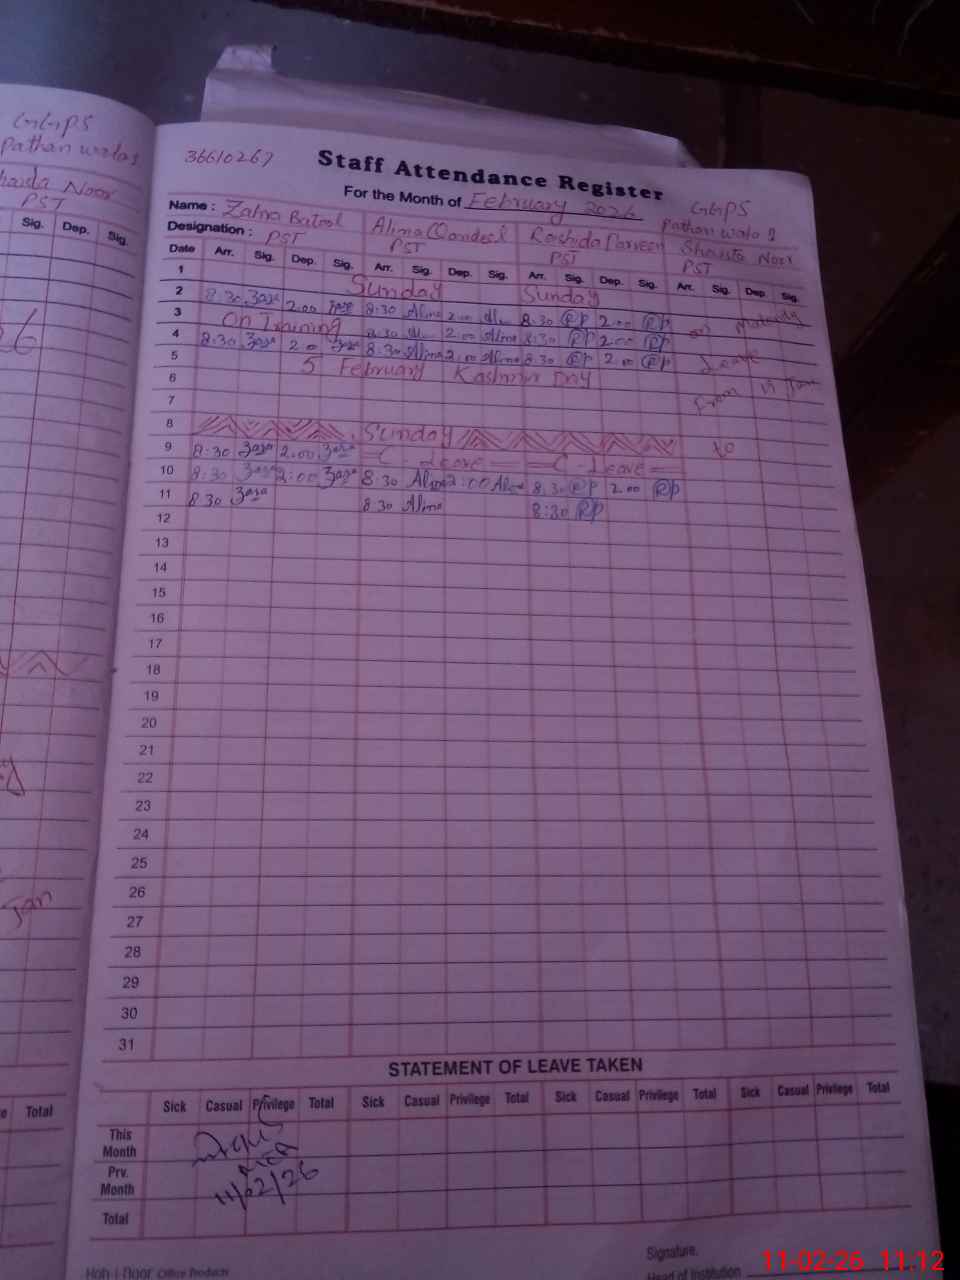 GGPS
Pathan walas
Noor
PST
Sig. Dep. Sig.
Jan
Total
36610267 Staff Attendance Register
For the Month of February 2026
GGPS
Pathan wala
Name : Zahra Batool Alima Qandeel Rashida Parveen Shaista Noor
Designation : PST PST PST PST
Date Arr. Sig. Dep. Sig. Arr. Sig. Dep. Sig. Arr. Sig. Dep. Sig. Arr. Sig. Dep. Sig.
1 Sunday Sunday
2 8:30 Zara 2:00 Zara 8:30 Alima 2:00 Alima 8:30 RP 2:00 RP on
3 On Training 8:30 Alima 2:00 Alima 8:30 RP 2:00 RP
4 8:30 Zara 2:00 Zara 8:30 Alima 2:00 Alima 8:30 RP 2:00 RP Leave
5 5 February Kashmir Day
6 From Jan
7
8 Sunday to
9 8:30 Zara 2:00 Zara C-Leave C-Leave
10 8:30 Zara 2:00 Zara 8:30 Alima 2:00 Alima 8:30 RP 2:00 RP
11 8:30 Zara 8:30 Alima 8:30 RP
12
13
14
15
16
17
18
19
20
21
22
23
24
25
26
27
28
29
30
31
STATEMENT OF LEAVE TAKEN
Sick Casual Privilege Total Sick Casual Privilege Total Sick Casual Privilege Total Sick Casual Privilege Total
This Month
Prv. Month
11/02/26
Total
Signature.
Head of Institution
Office Products
11-02-26 11.12